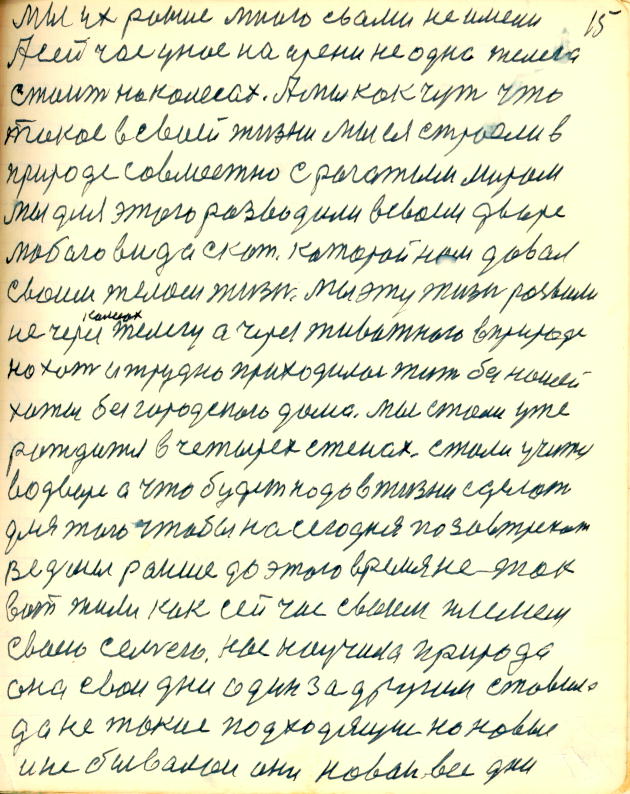 мы их раньше много свами не имели 15
А сей час уное на арени не одна телега
стоит на колесах. А мы как чут что
такое в своей жизни мы ея строели в
природе совместно с рагатым миром
мы для этого розводили в своем дворе
любого вида скот. которой нам давал
своим телом жизн. мы эту жизн розвили
колесах
не через телегу а через животного в природе
но хот и трудно приходилос жит без нашей
хаты без городского дома. мы стали уже
рождатся в четырех стенах. стали учится
во дворе а что будет надо в жизни сделат
для того чтобы на сегодня позавтрекат
ведь мы раньше до этого время не так
вот жили как сей час своим племем
своею семьею. нас научила природа
она свои дни один за другим ставила
да не такие подходящие но новые
и не бывалои они новаи все дни